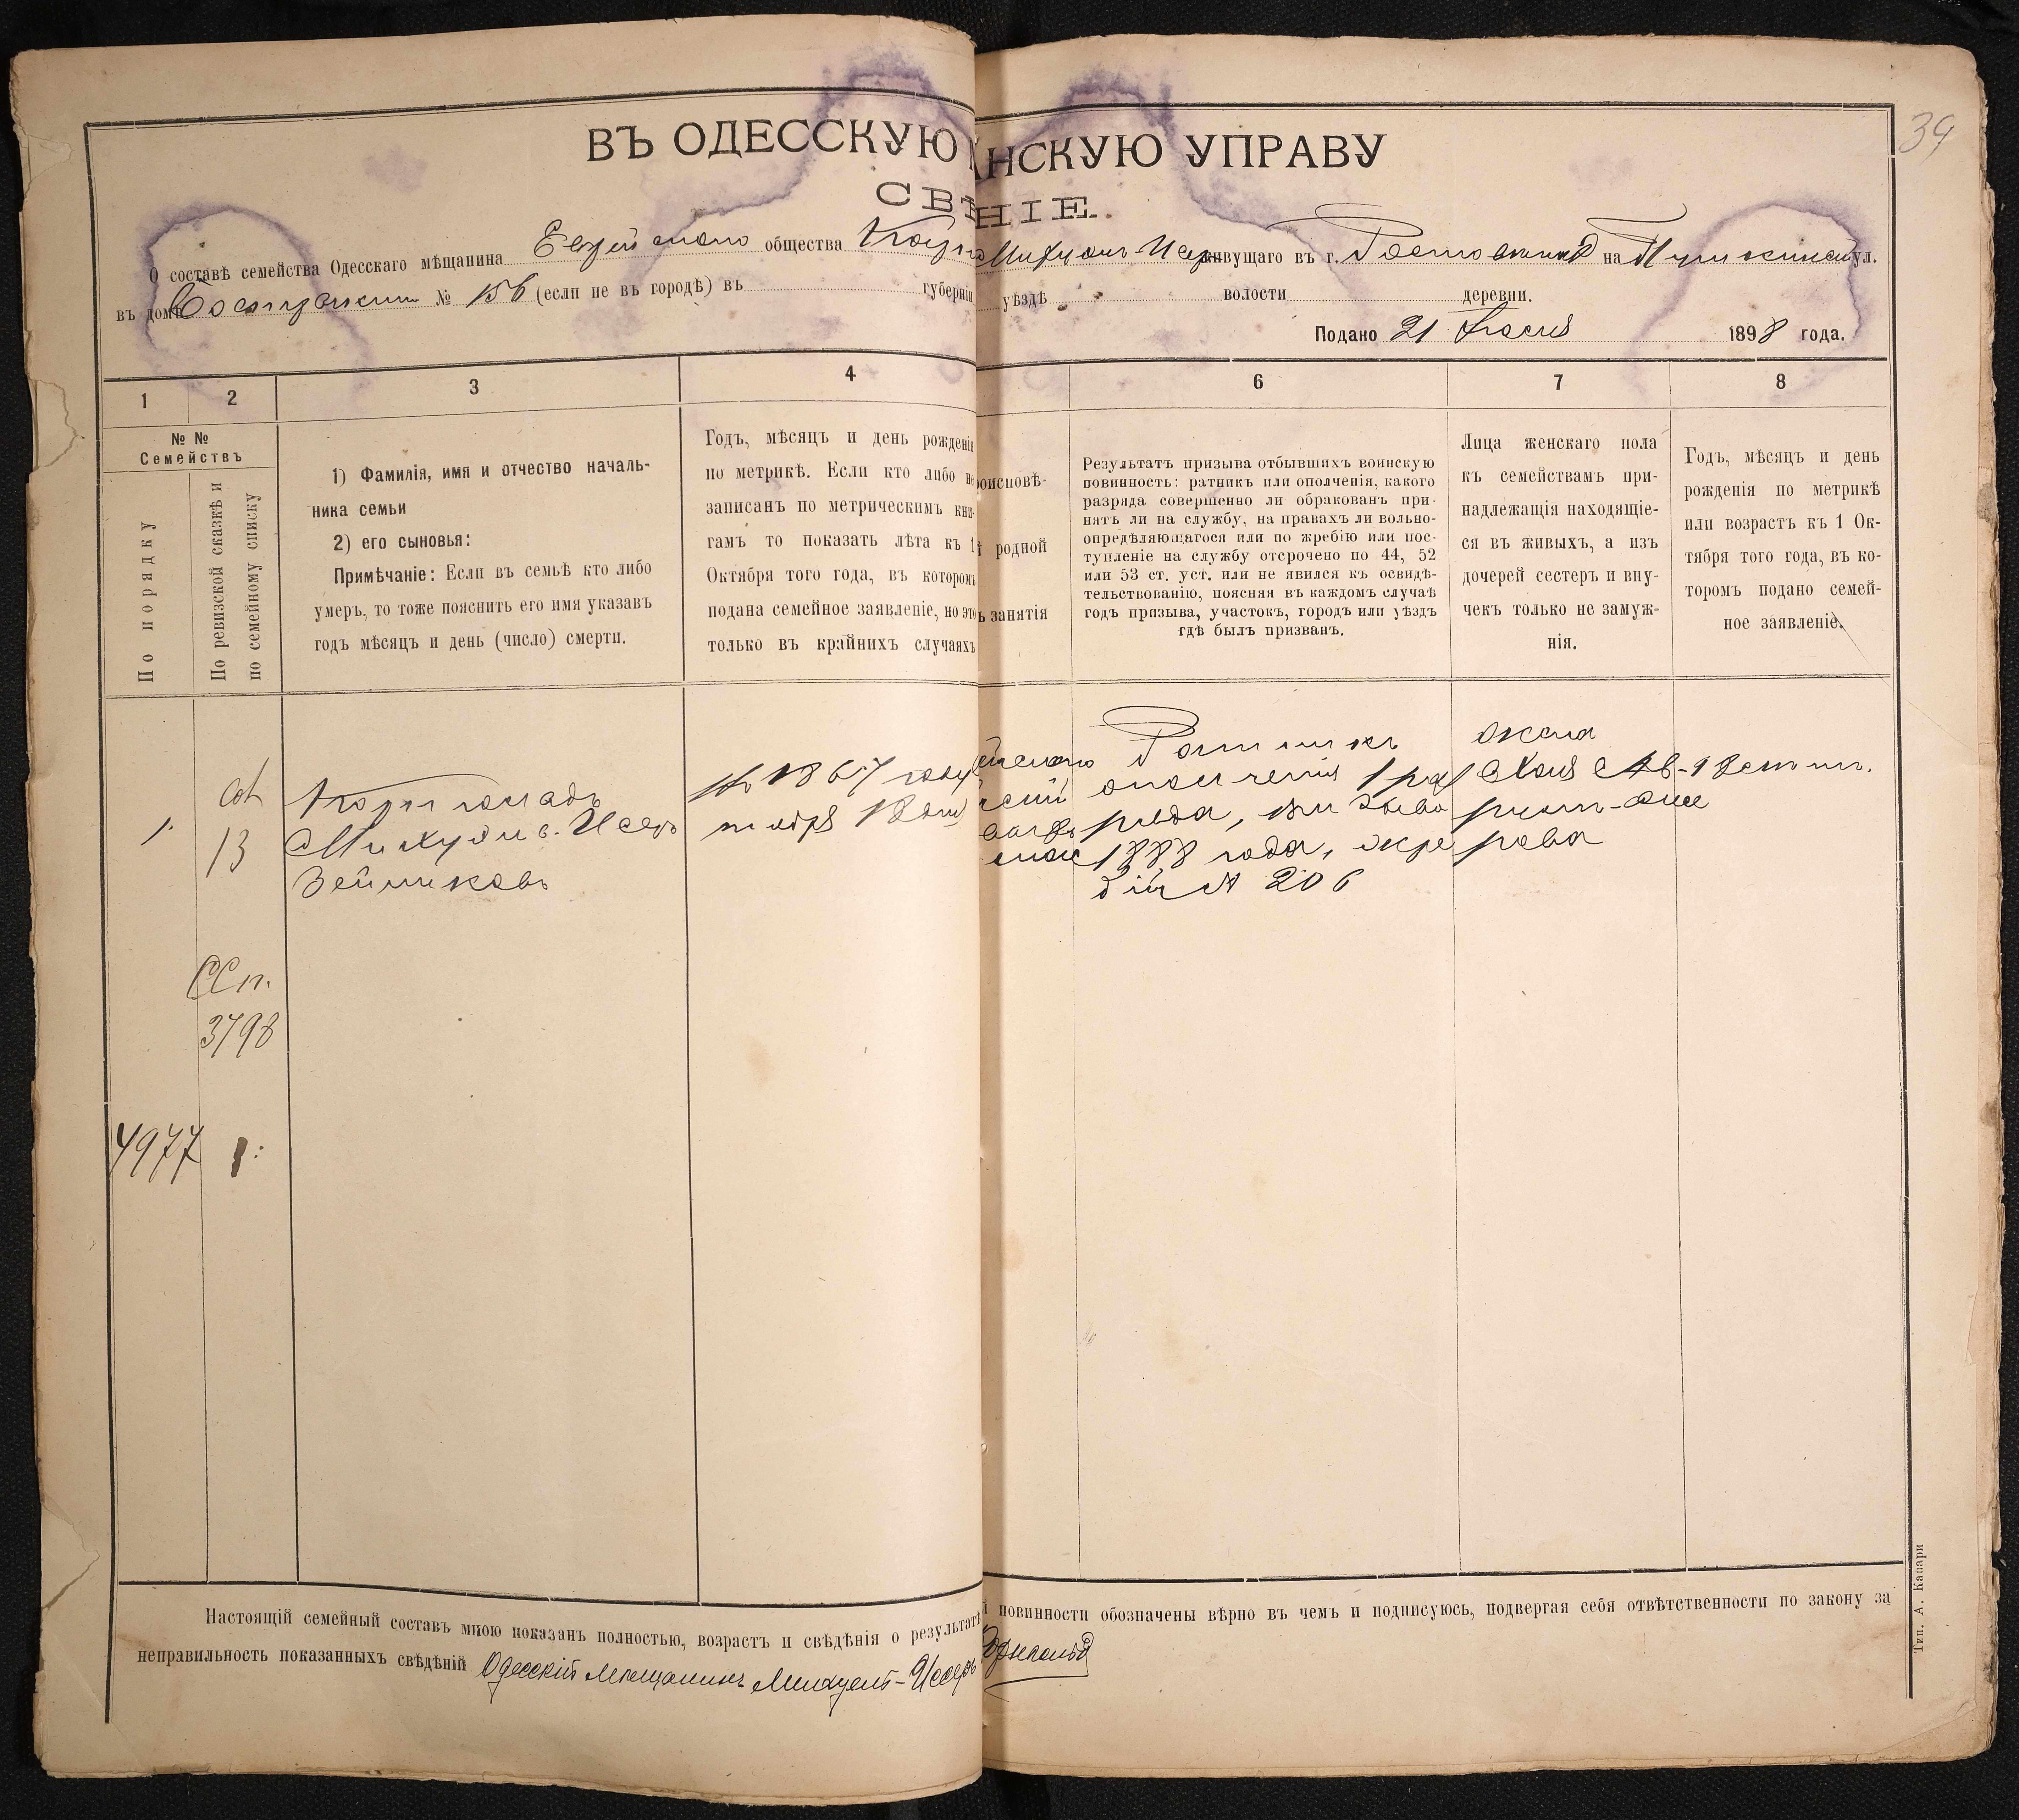 39
ВЪ ОДЕССКУЮ
АНСКУЮ УПРАВУ
СВѢ
НІЕ.
О составѣ семейства Одесскаго мѣщанина Еврейскаго общества
живущаго въ г. на Пушкинской ул.
въ домѣ № 156 (если не въ городѣ) въ губерніи
уѣздѣ волости деревни.
Подано 21 1898 года.
1
2
3
4
6
7
8
№ №
Семействъ
По порядку
По ревизской сказкѣ и
по семейному списку
1) Фамилія, имя и отчество началь-
ника семьи
2) его сыновья:
Примѣчаніе: Если въ семьѣ кто либо
умеръ, то тоже пояснить его имя указавъ
годъ мѣсяцъ и день (число) смерти.
Годъ, мѣсяцъ и день рожденія
по метрикѣ. Если кто либо не
записанъ по метрическимъ кни-
гамъ то показать лѣта къ 1
Октября того года, въ которомъ
подана семейное заявленіе, но это
только въ крайнихъ случаяхъ
роисповѣ-
родной
занятія
Результатъ призыва отбывшихъ воинскую
повинность: ратникъ или ополченія, какого
разряда совершенно ли обракованъ при-
нятъ ли на службу, на правахъ ли вольно-
опредѣляющагося или по жребію или пос-
тупленіе на службу отсрочено по 44, 52
или 53 ст. уст. или не явился къ освидѣ-
тельствованію, поясняя въ каждомъ случаѣ
годъ призыва, участокъ, городъ или уѣздъ
гдѣ былъ призванъ.
Лица женскаго пола
къ семействамъ при-
надлежащія находящіе-
ся въ живыхъ, а изъ
дочерей сестеръ и вну-
чекъ только не замуж-
нія.
Годъ, мѣсяцъ и день
рожденія по метрикѣ
или возрастъ къ 1 Ок-
тября того года, въ ко-
торомъ подано семей-
ное заявленіе.
1.
13
Михуэль-Исеръ
Зейликовъ
1867 году
18 дня
Ратникъ
ополченія 1 раз
ряда, призыва
1888 года, жре
бій № 206
жена
Хая
рова
3798
4977
1:
Настоящій семейный составъ мною показанъ полностью, возрастъ и свѣдѣнія о результатѣ
й повинности обозначены вѣрно въ чемъ и подписуюсь, подвергая себя отвѣтственности по закону за
неправильность показанныхъ свѣдѣній Одесскій мѣщанинъ Михуель-Иссеръ
Тип. А. Кашари